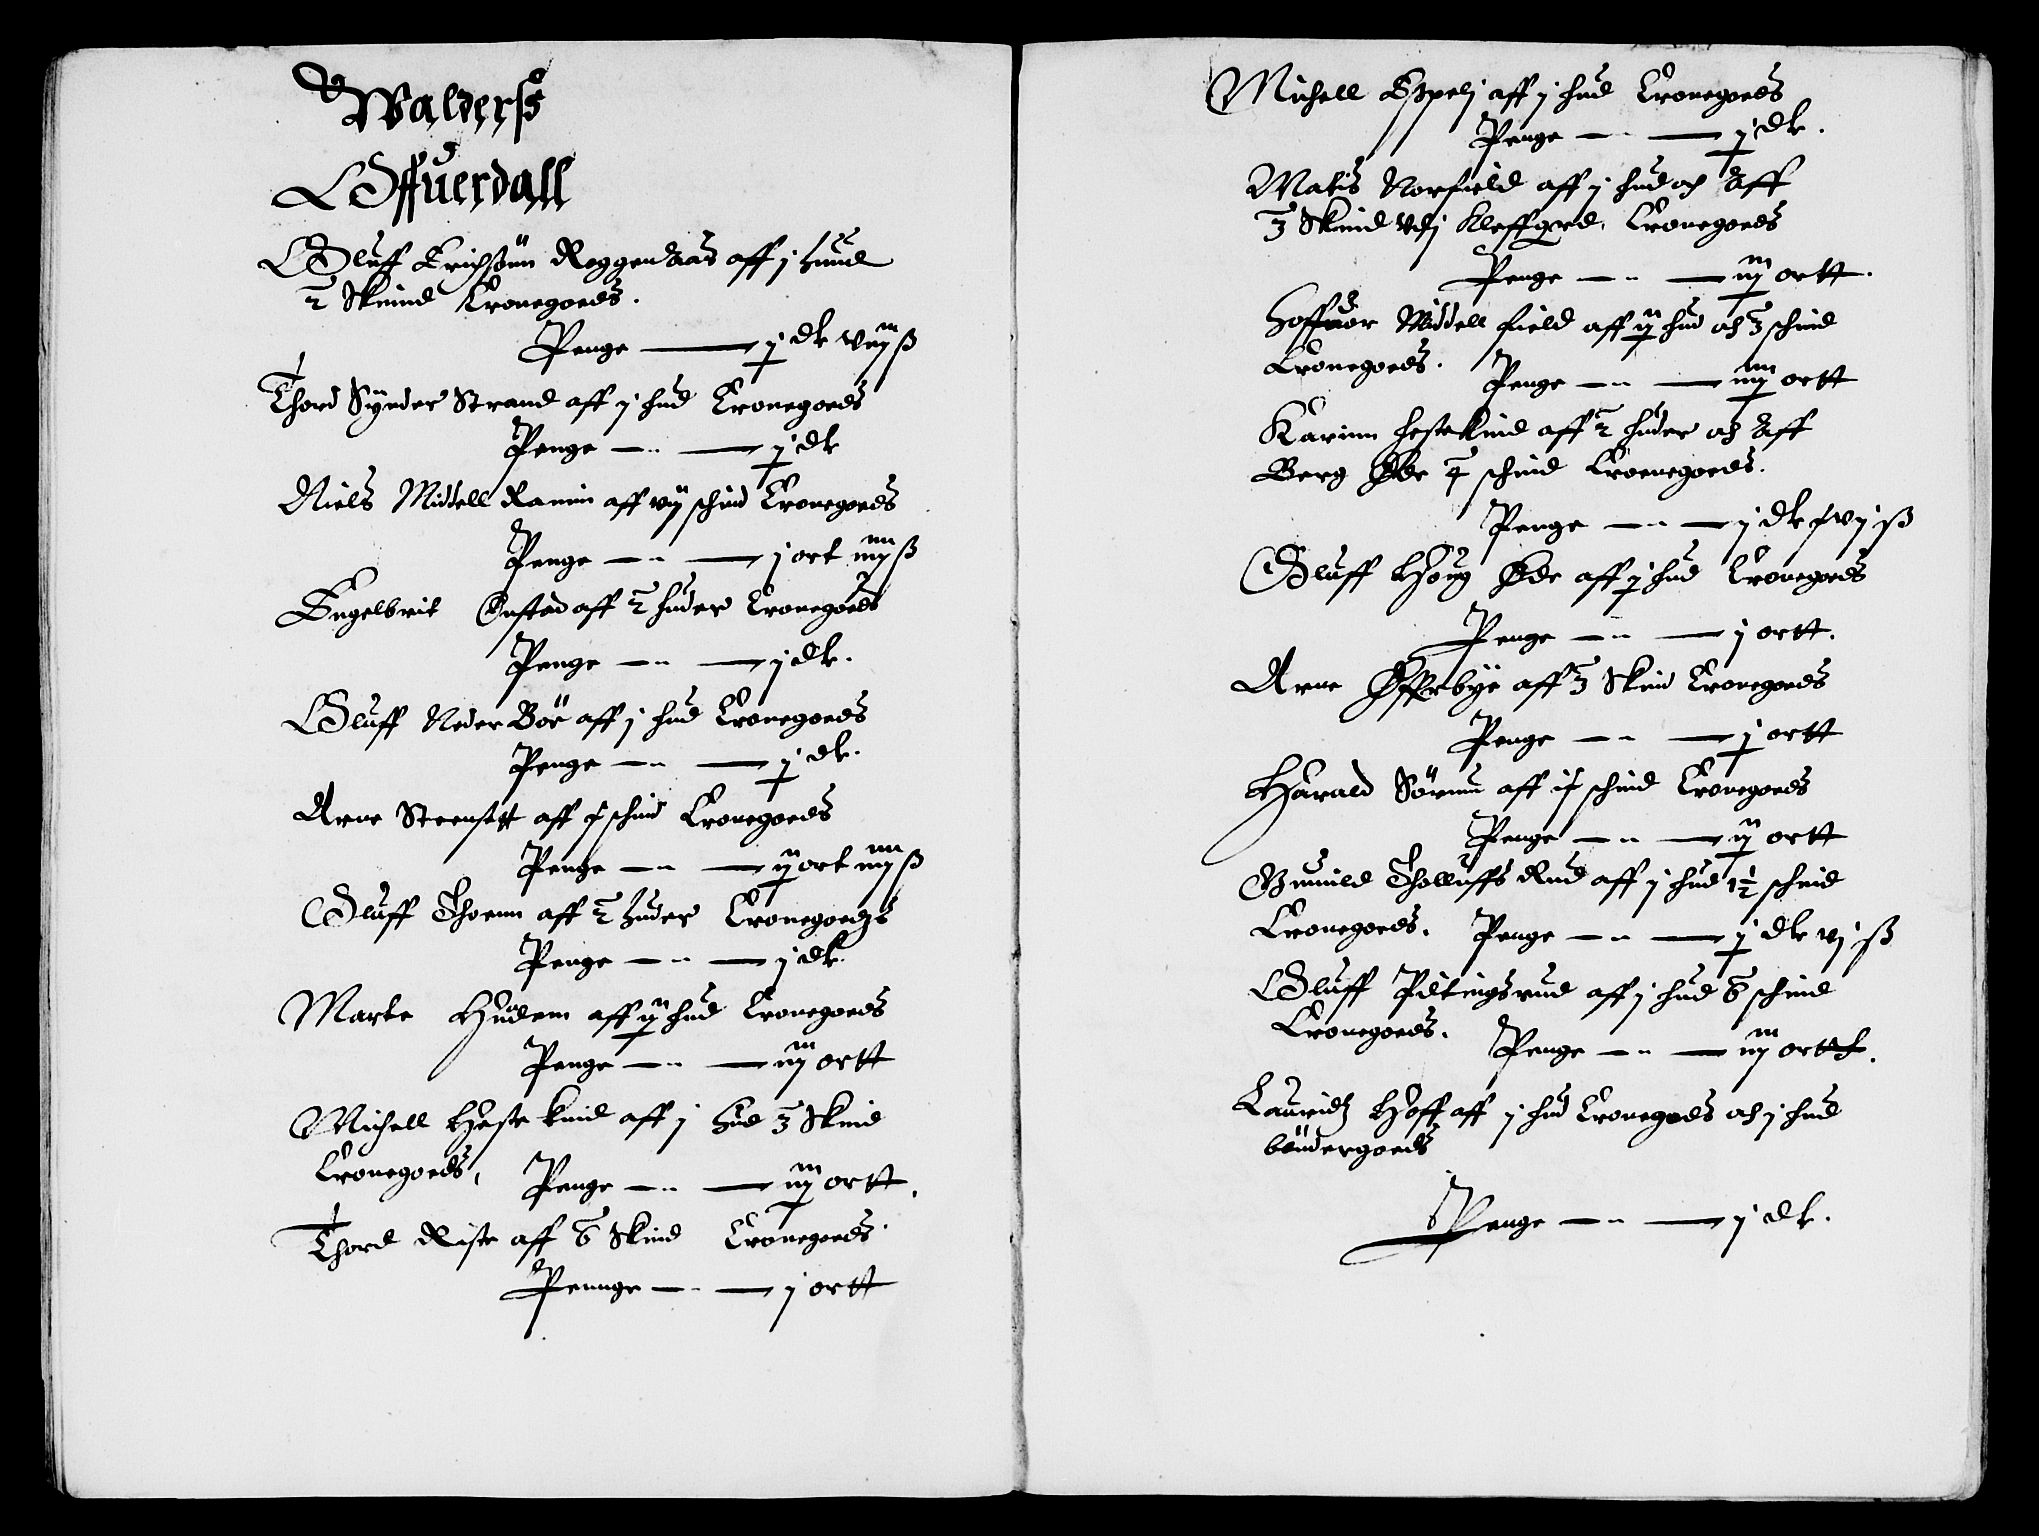 Walderß
Offuerdall
Oluff Erichsönn Roggendaas aff j huud
2 Skinnd Cronegoeds.
Penge — j dlr viij ß
Thord Synder Strand aff j hud Cronegoeds
Penge — j dlr
Niels Middell Ranim aff vij schind Cronegoeds
Penge — j ort iiij ß
Engelbrit Onstad aff 2 huder Cronegoeds
Penge — j dlr.
Oluff Neder Bör aff j hud Cronegoeds
Penge — j dlr.
Arne Steensett aff schind Cronegoeds
Penge — ij ort iiij ß
Oluff Thornn aff 2 huder Cronegoedzs
Penge — j dlr.
Marte Hudem aff ij hud Cronegoeds
Penge — iij ortt
Michell Heste kind aff j Hud 3 Skind
Cronegoeds, Penge — iij ortt.
Thord Riste aff 6 Skind Cronegoeds.
Pennge — j ortt
Michell Espelj aff j hud Cronegoeds
Penge — j dlr.
Matis Norfield aff j hud och aff
3 Skind Vdj Kleffgrd, Cronegoeds
Penge — iij ortt.
Hoffuor Middell field aff ij hud och 3 schind
Cronegoeds. Penge — iiij ortt
Karinn hestekind aff 2 huder och aff
Berg Øde 4 schind Croenegoeds.
Penge — j dlr vj ß
Oluff Houg Øde aff j hud Cronegoeds
Penge — j ortt.
Arne Øffrebye aff 3 Skind Cronegoeds
Penge — j ortt
Harald Sörum aff schind Cronegoeds
Penge — ij ortt
Gunild Tholluffs Rud aff j hud 1½ schind
Cronegoeds. Penge — j dlr vj ß
Oluff Piltingsrud aff j hud 6 schind
Cronegoeds. Penge — iij ortt.
Lauridz Hoff aff j hud Cronegoeds och j hud
böndergoeds
Penge — j dlr.